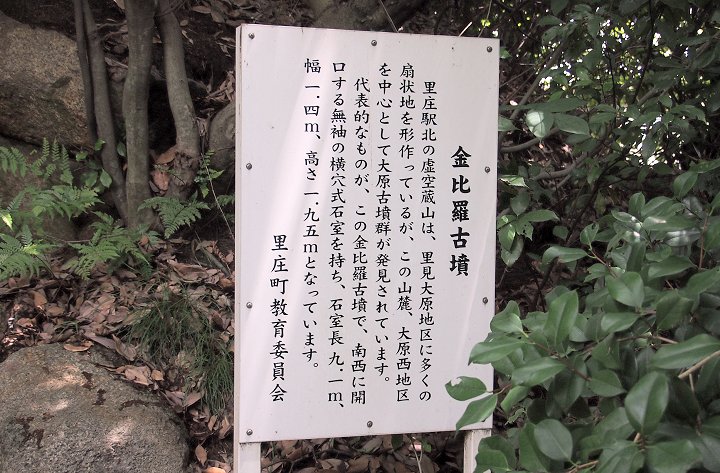 金比羅古墳
里庄駅北の虚空蔵山は、里見大原地区に多くの
扇状地を形作っているが、この山麓、大原西地区
を中心として大原古墳群が発見されています。
代表的なものが、この金比羅古墳で、南西に開
口する無袖の横穴式石室を持ち、石室長 九.一m、
幅 一.四m、高さ 一.九五mとなっています。
里庄町教育委員会